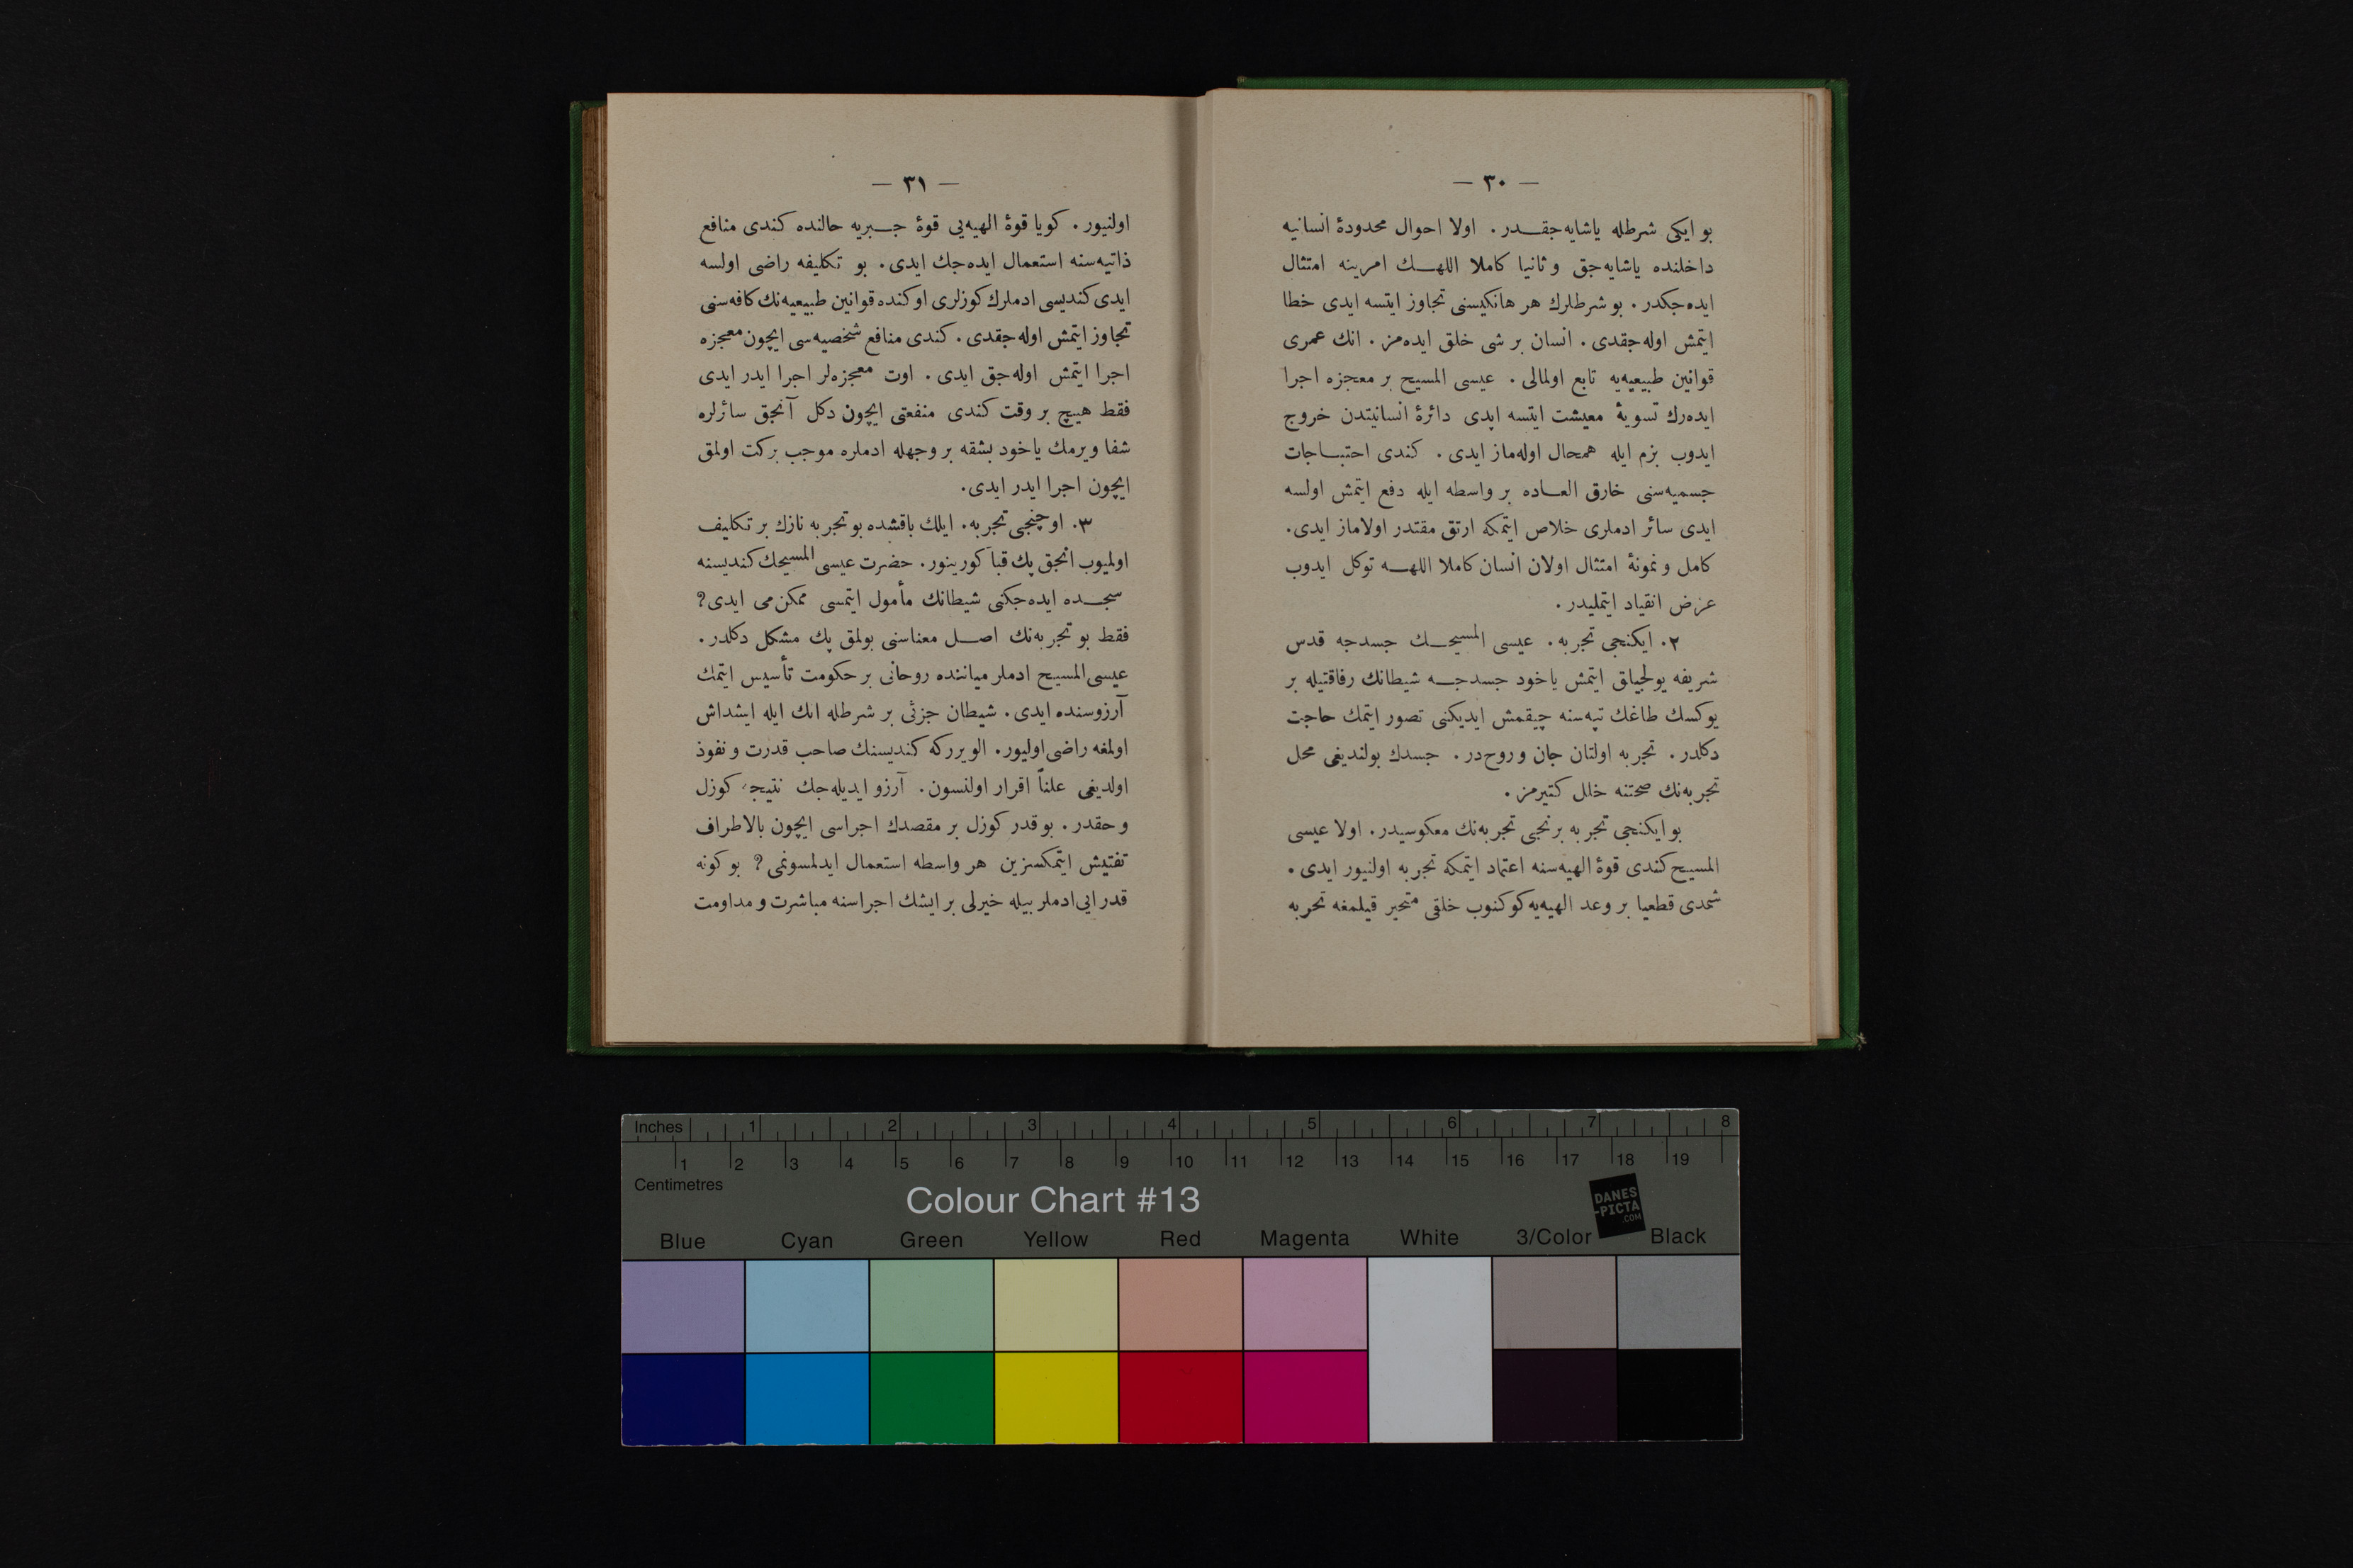 — ٣٠ —
بو ایكی شرطله یاشایه‌جقـدر . اولا احوال محدودهٔ انسانیه
داخلنده یاشایه‌جق و ثانیا كاملا اللهـك امرینه امتثال
ایده‌جكدر . بو شرطلرك هر هانكیسنی تجاوز ایتسه ایدی خطا
ایتمش اوله‌جقدی . انسان بر شی خلق ایده‌مز . انك عمری
قوانین طبیعیه‌یه تابع اولمالی . عیسی المسیح بر معجزه اجرا
ایده‌رك تسویهٔ معیشت ایتسه ایدی دائرهٔ انسانیتدن خروج
ایدوب بزم ایله همحال اوله‌ماز ایدی . كندی احتیـاجات
جسمیه‌سنی خارق العـاده بر واسطه ایله دفع ایتمش اولسه
ایدی سائر ادملری خلاص ایتمكه ارتق مقتدر اولاماز ایدی.
كامل و نمونهٔ امتثال اولان انسان كاملا اللهـه توكل ایدوب
عرض انقیاد ایتملیدر .
٢. ایكنجی تجربه . عیسی المسیحـك جسدجه قدس
شریفه یولجیلق ایتمش یاخود جسدجـه شیطانك رفاقتیله بر
یوكسك طاغك تپه‌سنه چیقمش ایدیكنی تصور ایتمك حاجت
دكلدر . تجربه اولنان جان و روح‌در . جسدك بولندیغی محل
تجربه‌نك صحتنه خلل كتیرمز .
بو ایكنجی تجربه برنجی تجربه‌نك معكوسیدر . اولا عیسی
المسیح كندی قوهٔ الهیه‌سنه اعتماد ایتمكه تجربه اولنیور ایدی .
شمدی قطعیا بر وعد الهیه‌یه كوكنوب خلقی متحیر قیلمغه تجربه
— ٣١ —
اولنیور . كویا قوهٔ الهیه‌یی قوهٔ جـبریه حالنده كندی منافع
ذاتیه‌سنه استعمال ایده‌جك ایدی . بو تكلیفه راضی اولسه
ایدی كندیسی ادملرك كوزلری اوكنده قوانین طبیعیه‌نك كافه‌سنی
تجاوز ایتمش اوله‌جقدی . كندی منافع شخصیه‌سی ایچون معجزه
اجرا ایتمش اوله‌جق ایدی . اوت معجزه‌لر اجرا ایدر ایدی
فقط هیچ بر وقت كندی منفعتی ایچون دكل آنجق سائرلره
شفا ویرمك یاخود بشقه بر وجهله ادملره موجب بركت اولمق
ایچون اجرا ایدر ایدی .
٣. اوچنجی تجربه . ایلك باقشده بو تجربه نازك بر تكلیف
اولمیوب انجق پك قبا كورینور . حضرت عیسی المسیحك كندیسنه
سجـده ایده‌جكنی شیطانك مأمول ایتمسی ممكن‌می ایدی ؟
فقط بو تجربه‌نك اصـل معناسنی بولمق پك مشكل دكلدر .
عیسی المسیح ادملر میاننده روحانی بر حكومت تأسیس ایتمك
آرزوسنده ایدی . شیطان جزئی بر شرطله انك ایله ایشداش
اولمغه راضی اولیور . الویرركه كندیسنك صاحب قدرت و نفوذ
اولدیغی علناً اقرار اولنسون . آرزو ایدیله‌جك نتیجهٔ كوزل
و حقدر . بو قدر كوزل بر مقصدك اجراسی ایچون بالاطراف
تفتیش ایتمكسزین هر واسطه استعمال ایدلمسونمی ؟ بو كونه
قدر ایی ادملر بیله خیرلی بر ایشك اجراسنه مباشرت و مداومت
Inches 1 2 3 4 5 6 7 8
1 2 3 4 5 6 7 8 9 10 11 12 13 14 15 16 17 18 19
Centimetres
Colour Chart #13
DANES
-PICTA
.COM
Blue Cyan Green Yellow Red Magenta White 3/Color Black